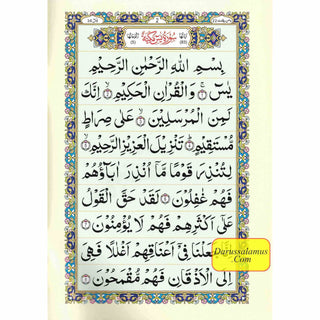 2
سُوْرَةُ يٰسٓ مَكِّيَّةٌ
بِسْمِ اللّٰهِ الرَّحْمٰنِ الرَّحِيْمِ
يٰسٓ ۝ وَالْقُرْاٰنِ الْحَكِيْمِ ۝ اِنَّكَ
لَمِنَ الْمُرْسَلِيْنَ ۝ عَلٰى صِرَاطٍ
مُّسْتَقِيْمٍ ۝ تَنْزِيْلَ الْعَزِيْزِ الرَّحِيْمِ ۝
لِتُنْذِرَ قَوْمًا مَّاۤ اُنْذِرَ اٰبَآؤُهُمْ
فَهُمْ غٰفِلُوْنَ ۝ لَقَدْ حَقَّ الْقَوْلُ
عَلٰۤى اَكْثَرِهِمْ فَهُمْ لَا يُؤْمِنُوْنَ ۝
اِنَّا جَعَلْنَا فِيْۤ اَعْنَاقِهِمْ اَغْلٰلًا فَهِيَ
اِلَى الْاَذْقَانِ فَهُمْ مُّقْمَحُوْنَ ۝
Darussalamus
.Com